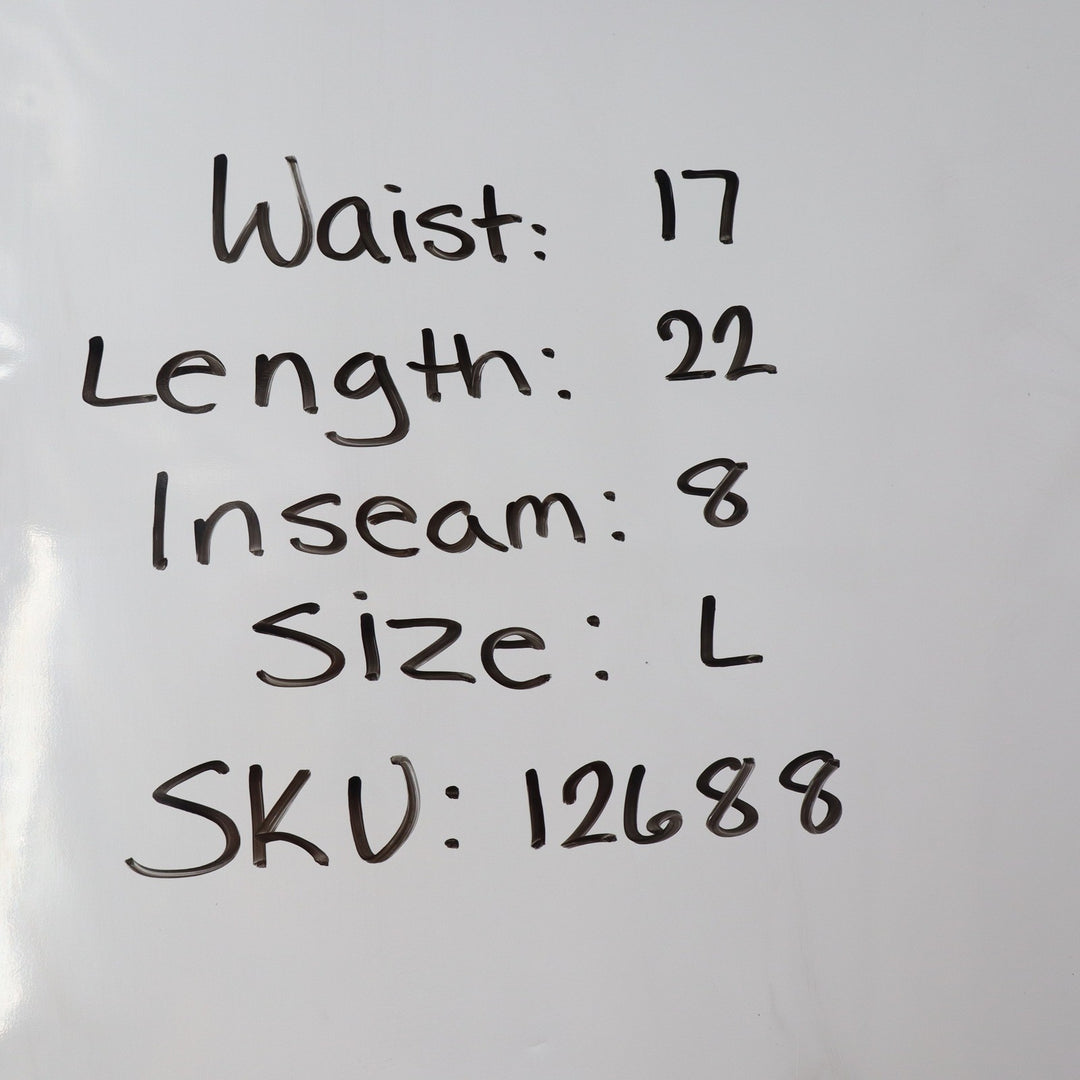 Waist: 17
Length: 22
Inseam: 8
Size: L
SKU: 12688